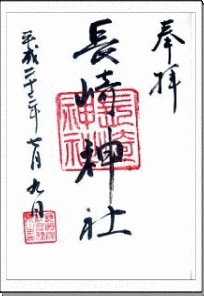 奉拝
長崎神社
長崎神社
平成二十二年七月九日